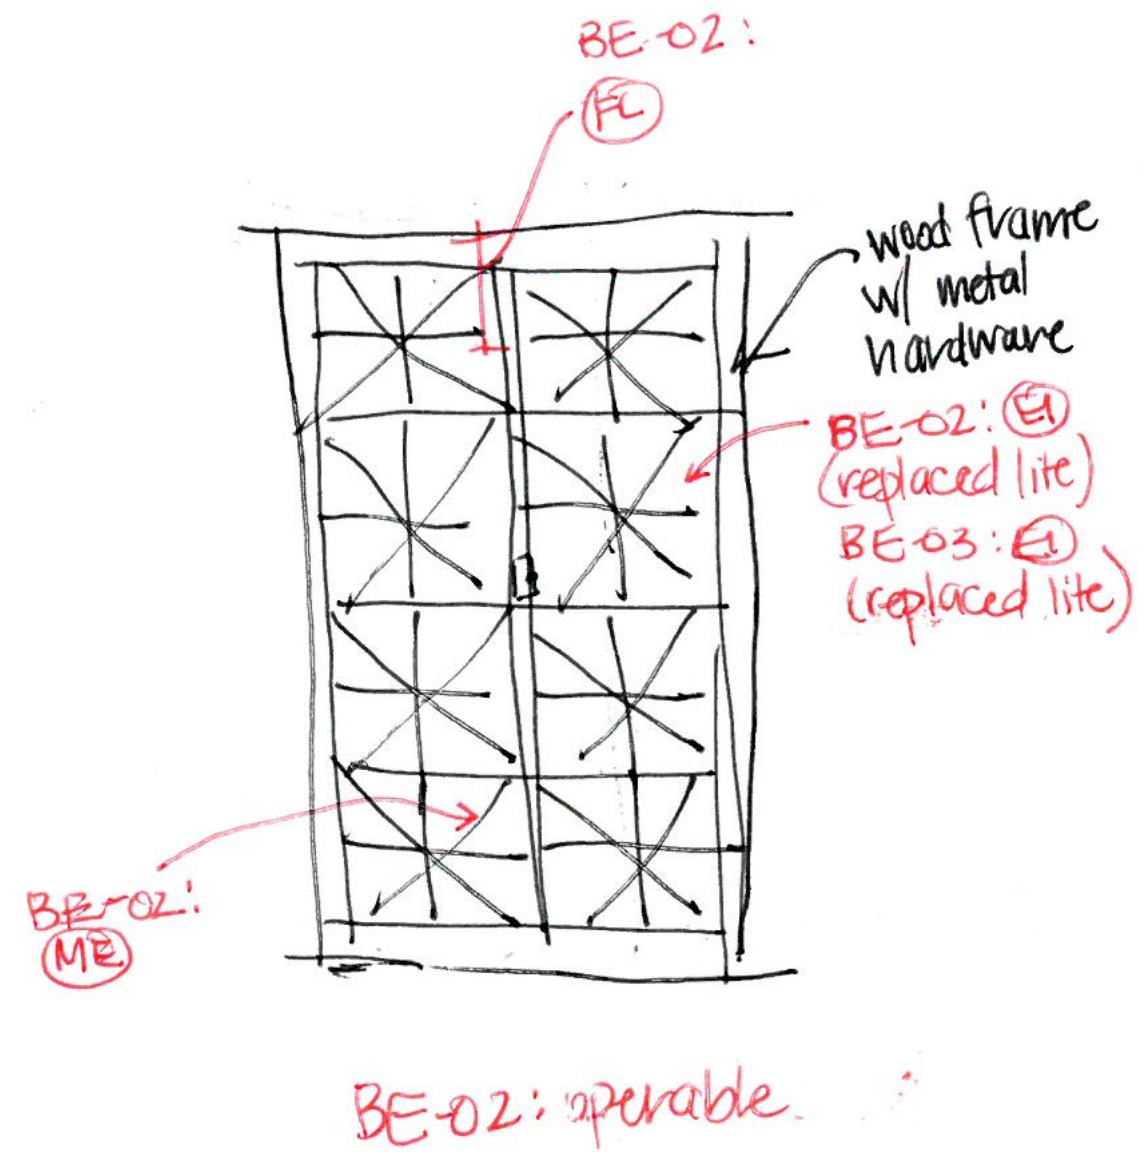 BE-02:
FL
wood frame
w/ metal
hardware
BE-02: EI
(replaced lite)
BE-03: EI
(replaced lite)
BE-02:
ME
BE-02: operable